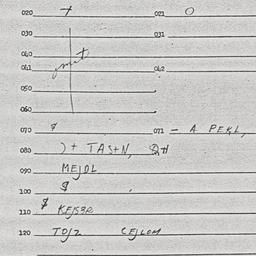 020 + 021 0
030 031
040
041 042
050
060
070 $ 071 - A PEKL,
080 )+ TAS+N,
090 MEJOL
100 $
110 $ KEJSER
120 TOJZ CEJLOM